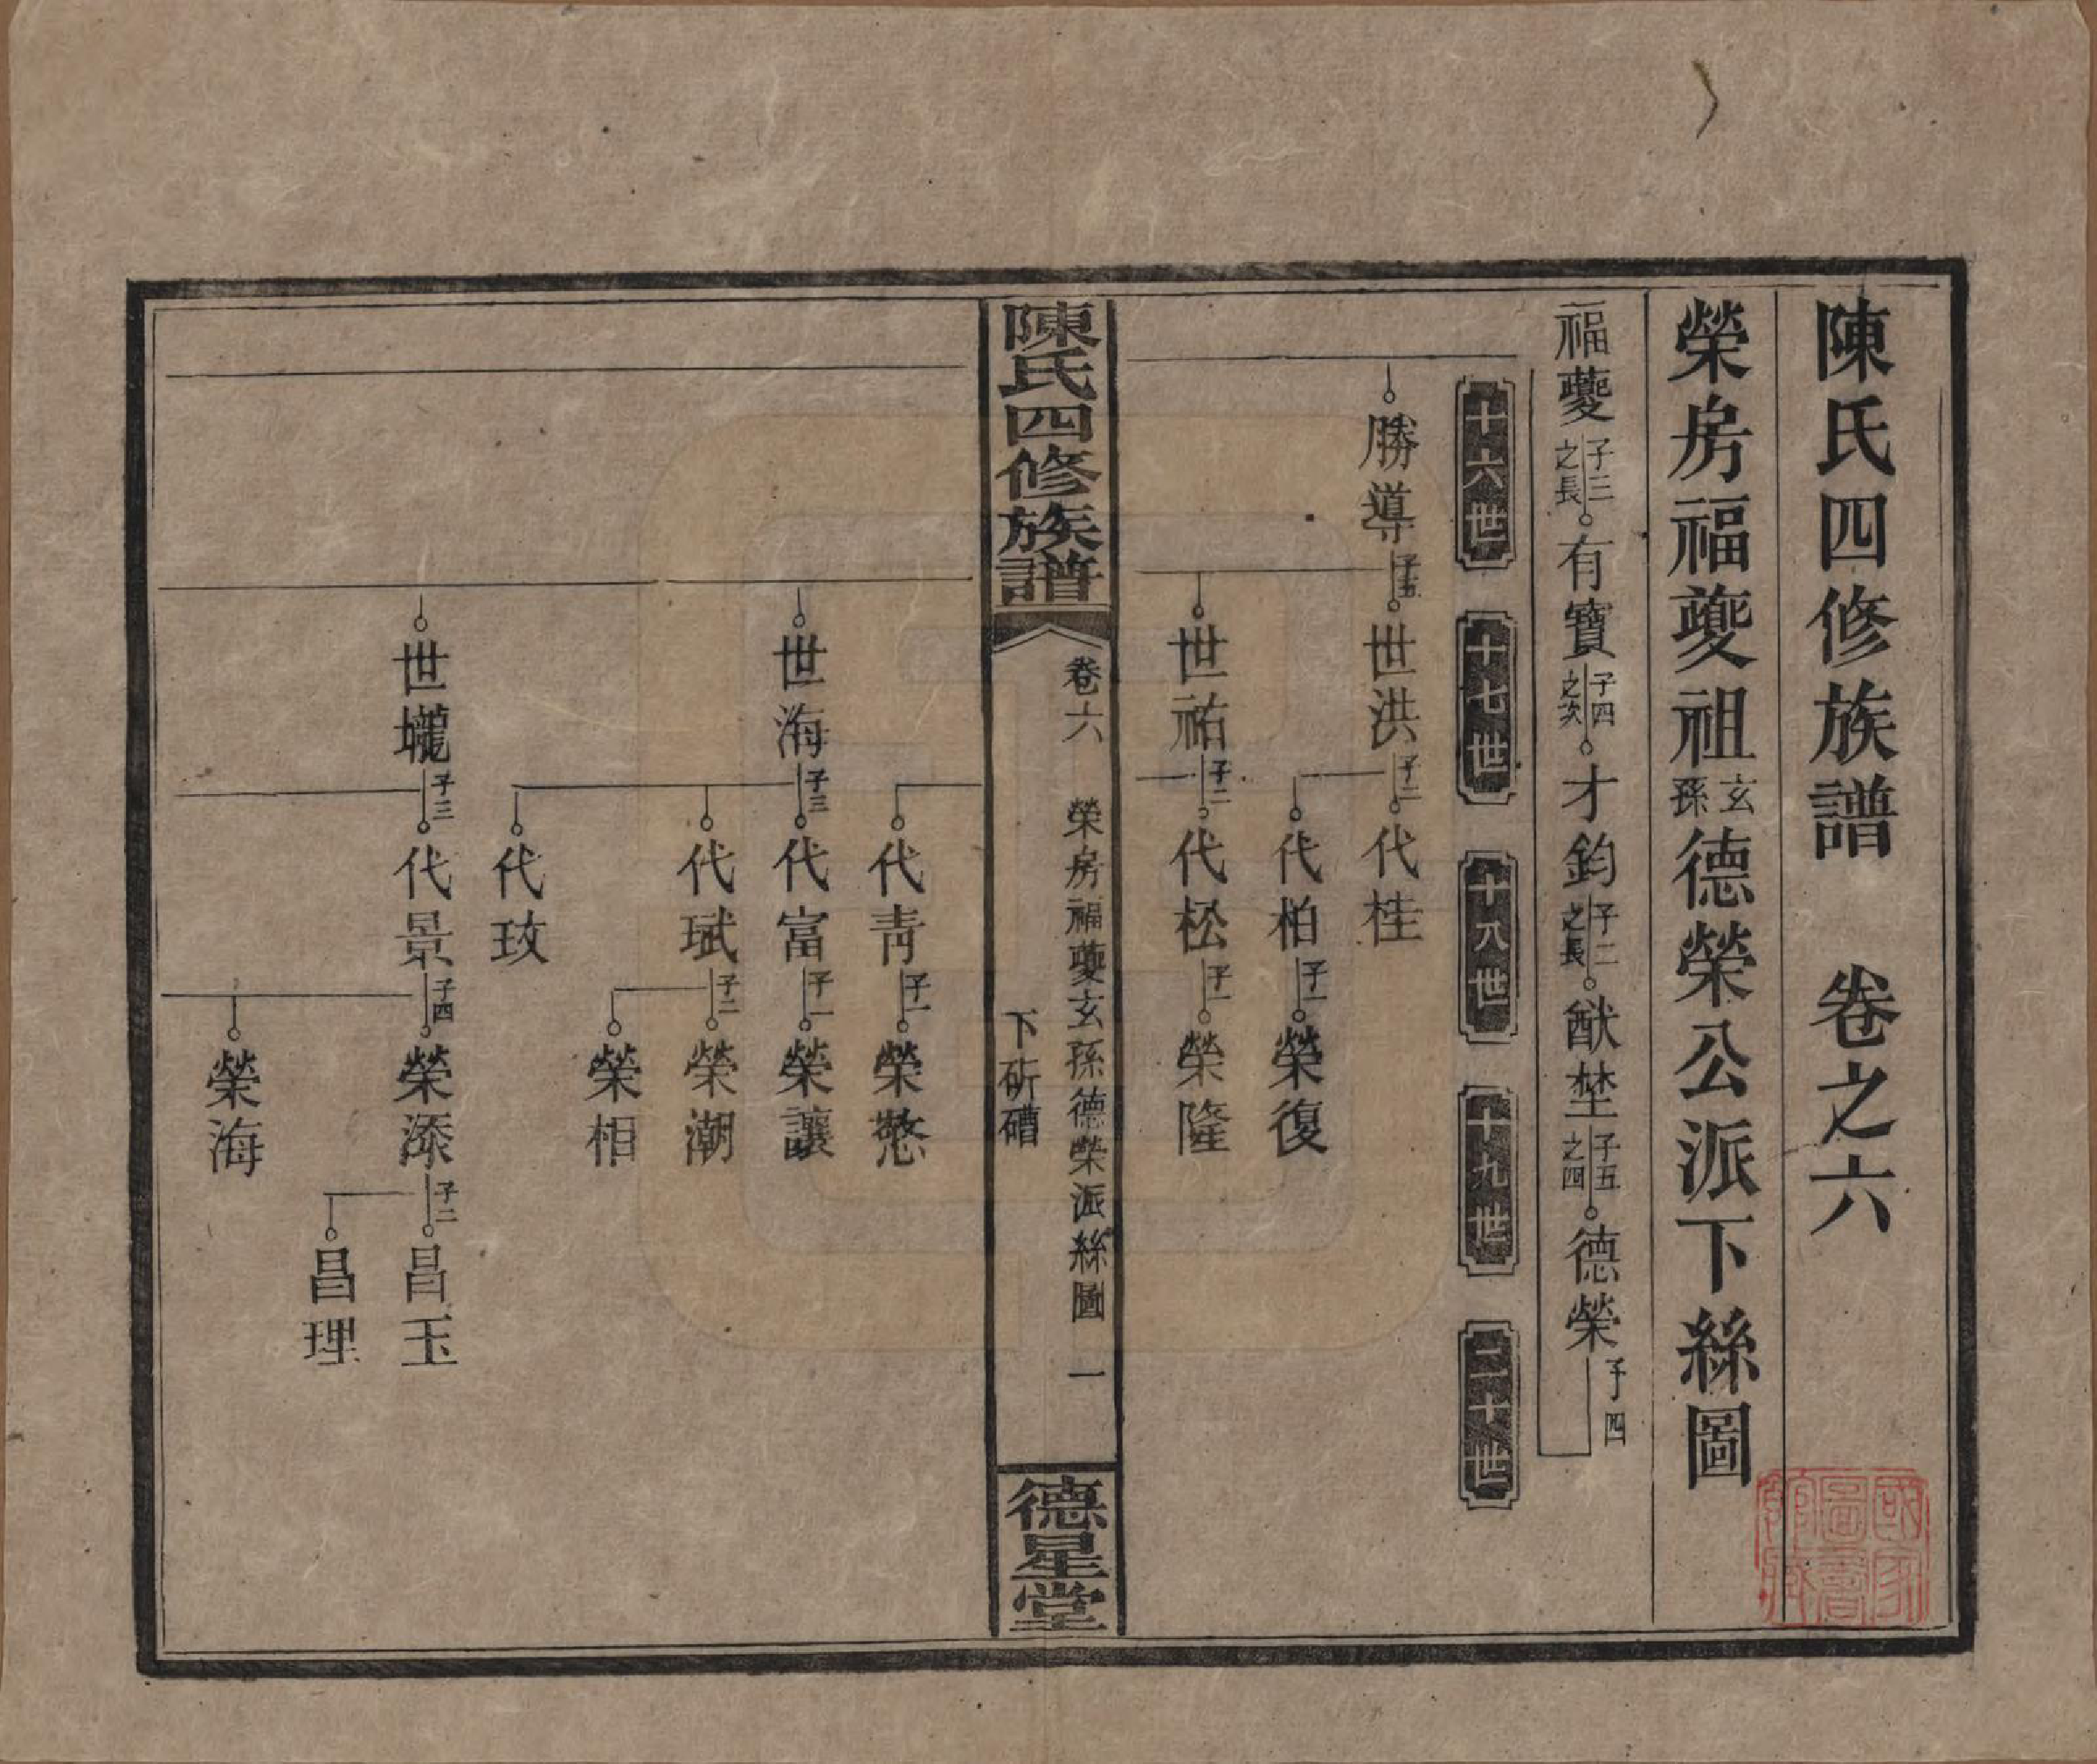 陳氏四修族譜 卷之六
榮房福夔祖玄孫德榮公派下絲圖
福夔子三之長 有寶子四之次 才鈞子二之長 猷埜子五之四 德榮子四
十六世 十七世 十八世 十九世 二十世
勝導子五 世洪子二 代桂
代柏子一 榮復
世祐子二 代松子一 榮隆
陳氏四修族譜 卷六 榮房福夔玄孫德榮派絲圖 一
下斫磄
德星堂
代青子一 榮憼
世海子三 代富子一 榮讓
代珷子二 榮潮
榮相
代玫
世壠子三 代景子四 榮添子二 昌玉
昌理
榮海
國家圖書館藏